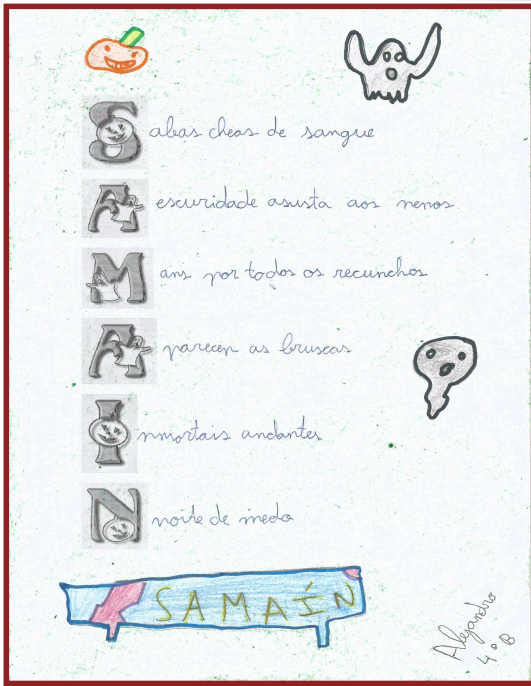 S abas cheas de sangue
A escuridade asusta aos nenos.
M ans por todos os recunchos
A parecen as bruxas
I nmortais andantes
N noite de medo
SAMAÍN
Alejandro
4º B